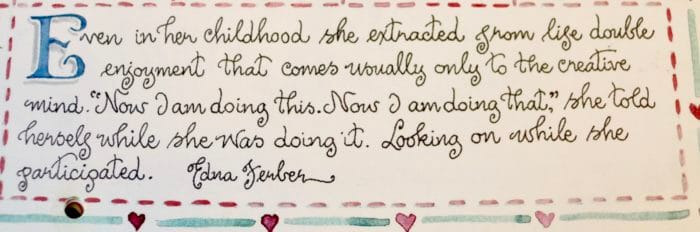 Even in her childhood she extracted from life double
enjoyment that comes usually only to the creative
mind. "Now I am doing this. Now I am doing that," she told
herself while she was doing it. Looking on while she
participated. Edna Ferber